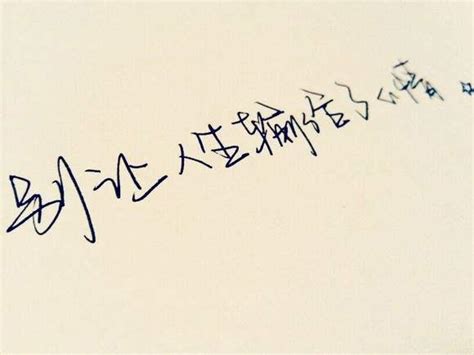 别让人生输给了心情..